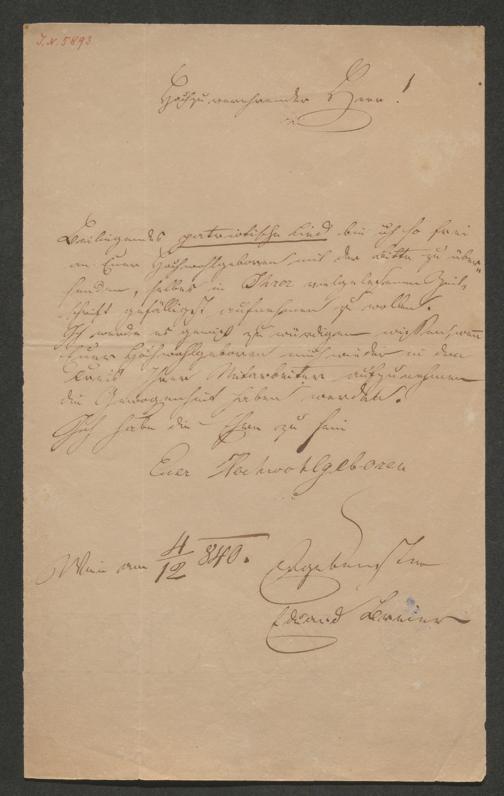 I.N. 5893
Hochzuverehrender Herr!
Beiliegendes patriotische Lied bin ich so frei
an Euer Hochwohlgeboren mit der Bitte zu über-
senden, selbes in Ihrer vielgelesenen Zeit-
schrift gefälligst aufnehmen zu wollen.
Ich werde es gewiß zu würdigen wissen, wenn
Euer Hochwohlgeboren mich wieder in den
Kreis Ihrer Mitarbeiter aufzunehmen
die Gewogenheit haben werden.
Ich habe die Ehre zu sein
Euer Hochwohlgeboren
Wien am 4/12 840.
ergebenster
Eduard Breier